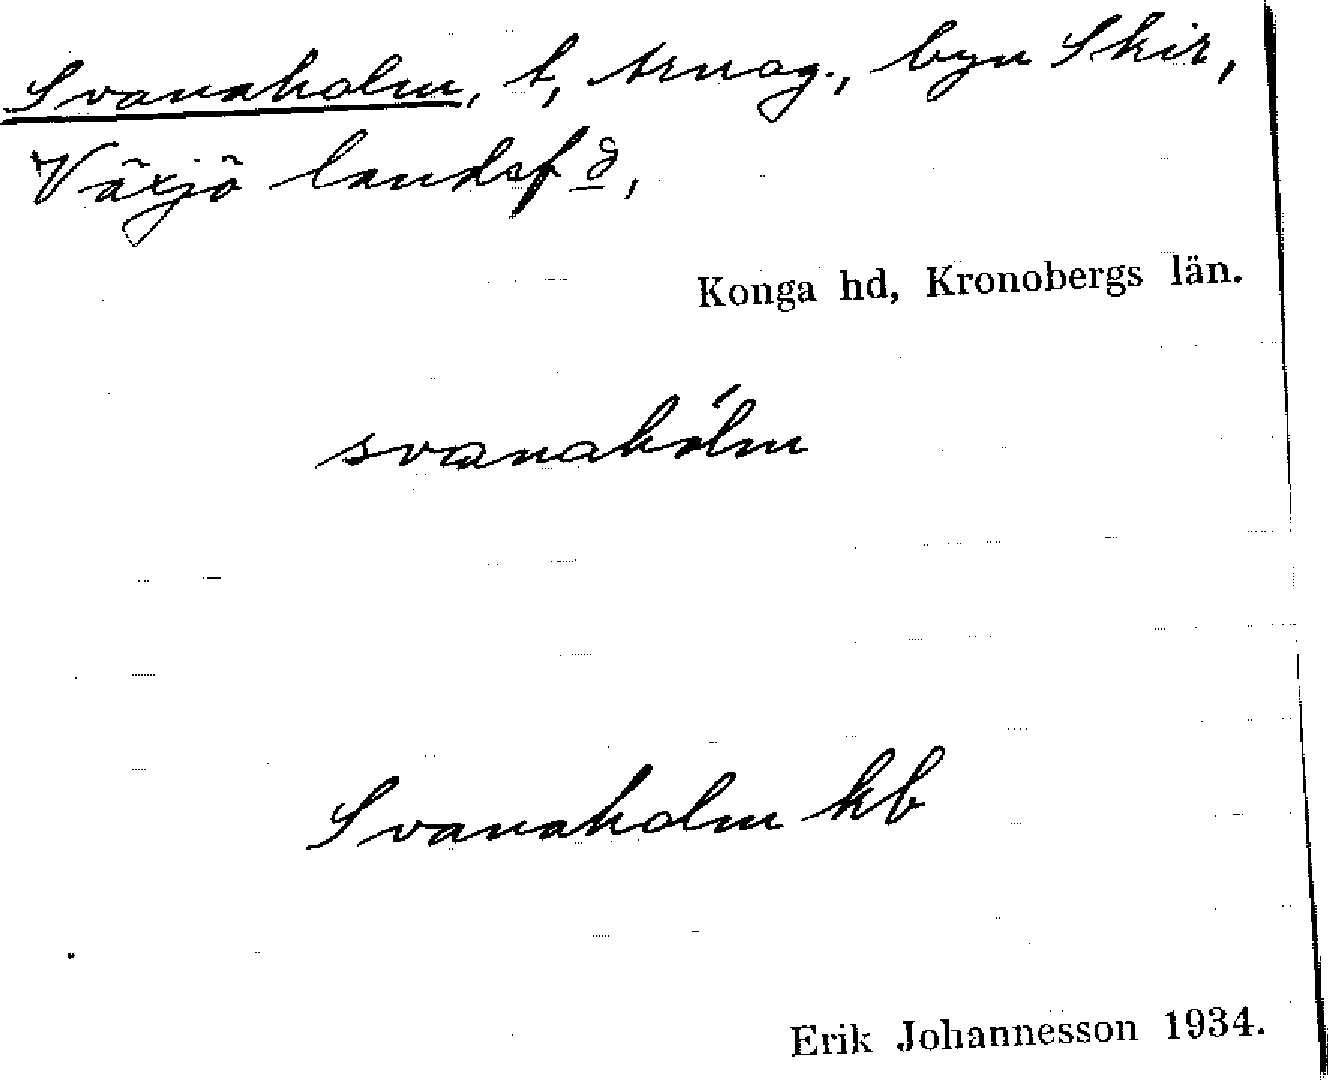 Svanaholm, t, avsög., byn Skir,
Växjö landsf d,
Konga hd, Kronobergs län.
svanahólm
Svanaholm kb
Erik Johannesson 1934.